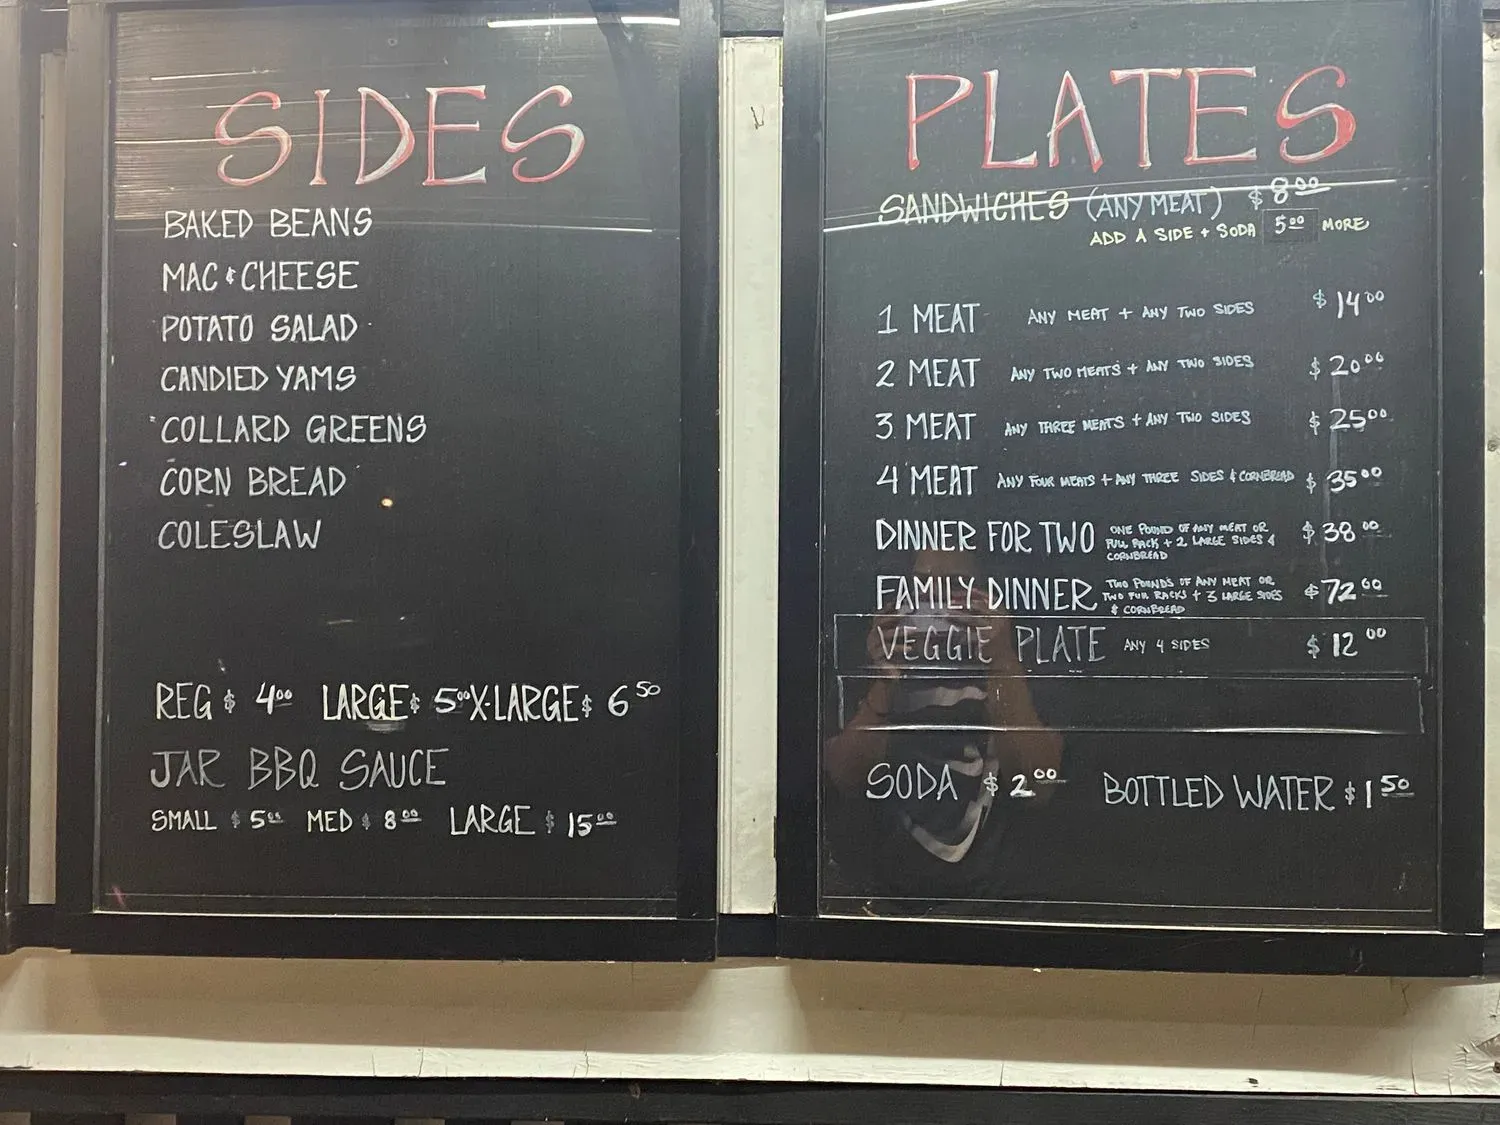 SIDES
BAKED BEANS
MAC & CHEESE
POTATO SALAD
CANDIED YAMS
COLLARD GREENS
CORN BREAD
COLESLAW
REG $ 4.00 LARGE $ 5.00 X-LARGE $ 6.50
JAR BBQ SAUCE
SMALL $ 5.00 MED $ 8.00 LARGE $ 15.00
PLATES
SANDWICHES (ANY MEAT) $ 8.00
ADD A SIDE + SODA 5.00 MORE
1 MEAT ANY MEAT + ANY TWO SIDES $ 14.00
2 MEAT ANY TWO MEATS + ANY TWO SIDES $ 20.00
3 MEAT ANY THREE MEATS + ANY TWO SIDES $ 25.00
4 MEAT ANY FOUR MEATS + ANY THREE SIDES & CORNBREAD $ 35.00
DINNER FOR TWO ONE POUND OF ANY MEAT OR $ 38.00
FULL RACK + 2 LARGE SIDES &
CORNBREAD
FAMILY DINNER TWO POUNDS OF ANY MEAT OR $ 72.00
TWO FULL RACKS + 3 LARGE SIDES
& CORNBREAD
VEGGIE PLATE ANY 4 SIDES $ 12.00
SODA $ 2.00 BOTTLED WATER $ 1.50